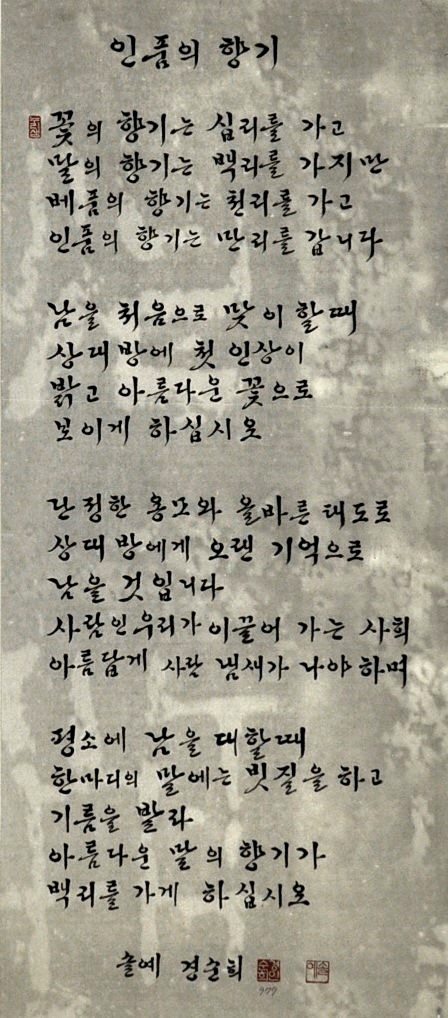 인품의 향기
꽃의 향기는 십리를 가고
말의 향기는 백리를 가지만
베품의 향기는 천리를 가고
인품의 향기는 만리를 갑니다
남을 처음으로 맞이 할때
상대방에 첫인상이
밝고 아름다운 꽃으로
보이게 하십시오
단정한 용모와 올바른 태도로
상대방에게 오랜 기억으로
남을 것입니다
사람인 우리가 이끌어 가는 사회
아름답게 사람 냄새가 나야 하며
평소에 남을 대할때
한마디의 말에는 빗질을 하고
기름을 발라
아름다운 말의 향기가
백리를 가게 하십시오
솔예 경순희